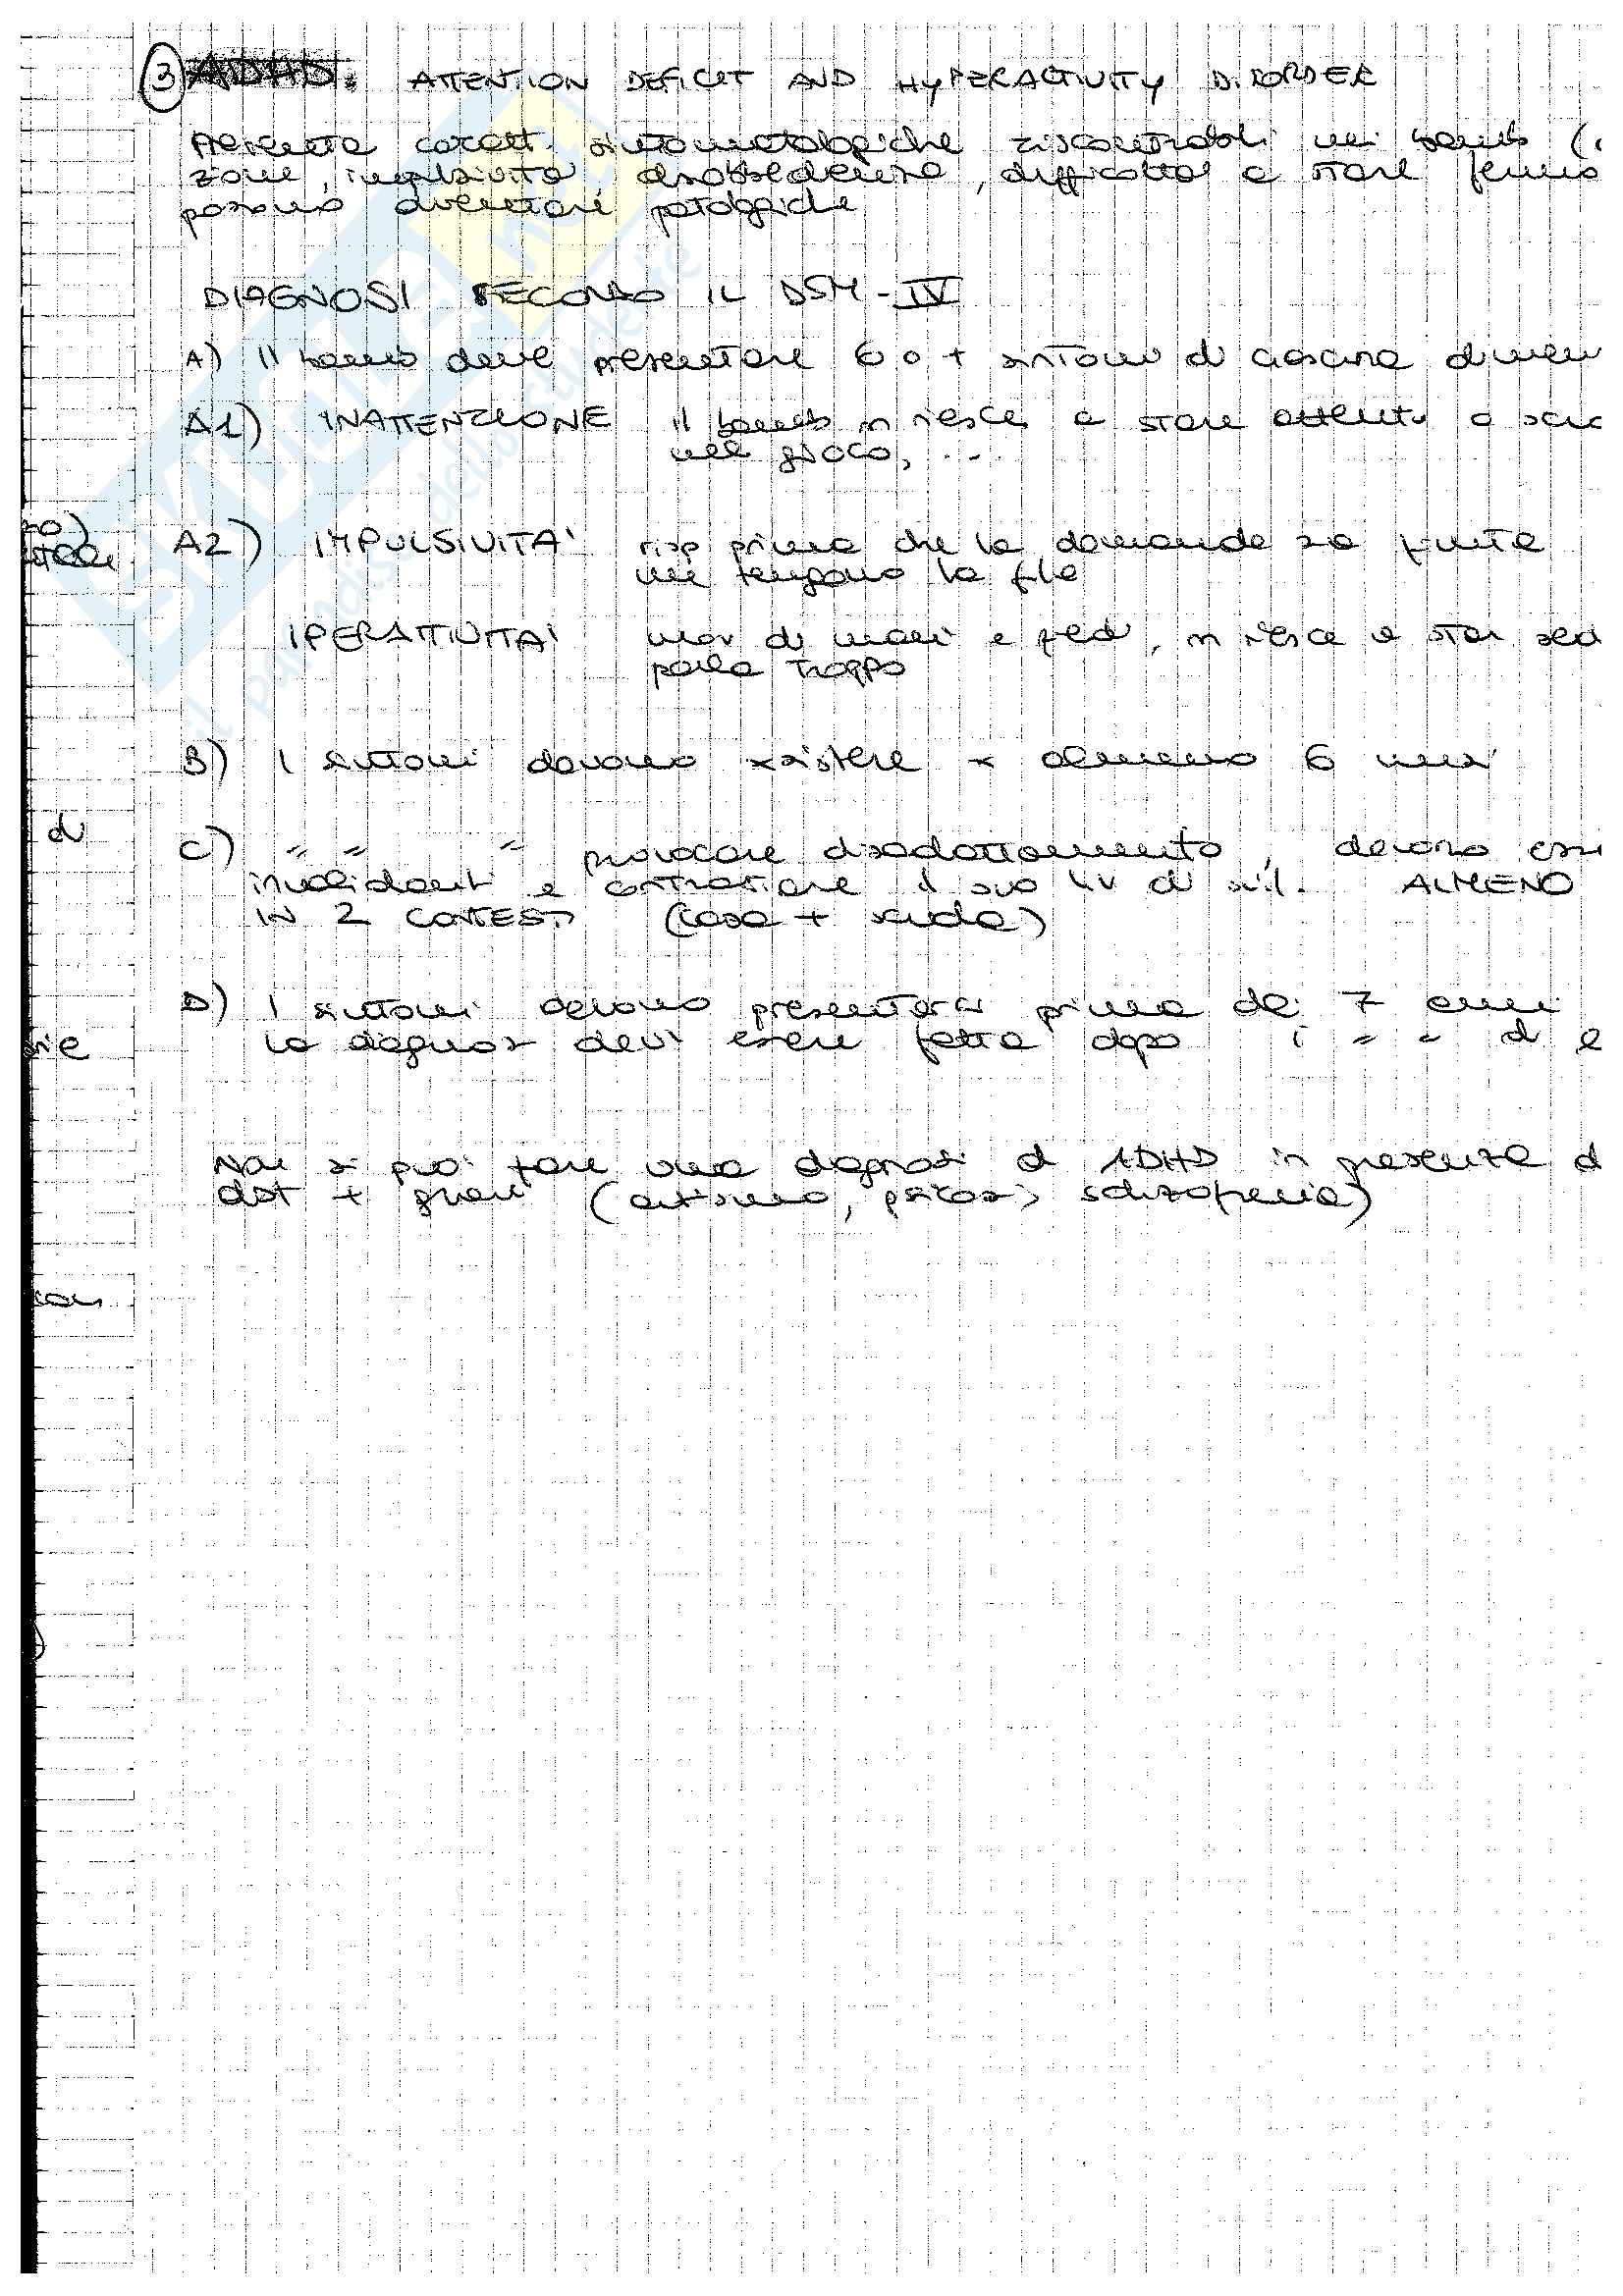 ③ ADHD: ATTENTION DEFICIT AND HYPERACTIVITY DISORDER
Presenta caratt. sintomatologiche riscontrabili nei bamb (
zione, impulsività, disobbedienza, difficoltà a stare fermo
possono diventare patologiche
DIAGNOSI SECONDO IL DSM-IV
A) Il bamb deve presentare 6 o + sintomi di ciascuna dimen
A1) INATTENZIONE il bamb n riesce a stare attento a scuo
nel gioco, ...
A2) IMPULSIVITA' risp prima che la domanda sia finita
tengono la fila
IPERATTIVITA' mov di mani e piedi, n riesce a star sed
parla troppo
B) I sintomi devono xsistere x almeno 6 mesi
di
C) " " " provocare disadattamento, devono esse
invalidanti e contrastare il suo liv di svil. ALMENO
IN 2 CONTESTI (casa + scuola)
D) I sintomi devono presentarsi prima dei 7 anni
la diagnosi deve essere fatta dopo i " " d e
Non si può fare una diagnosi di ADHD in presenza d
dist + gravi (autismo, psicosi, schizofrenia)
il punto di